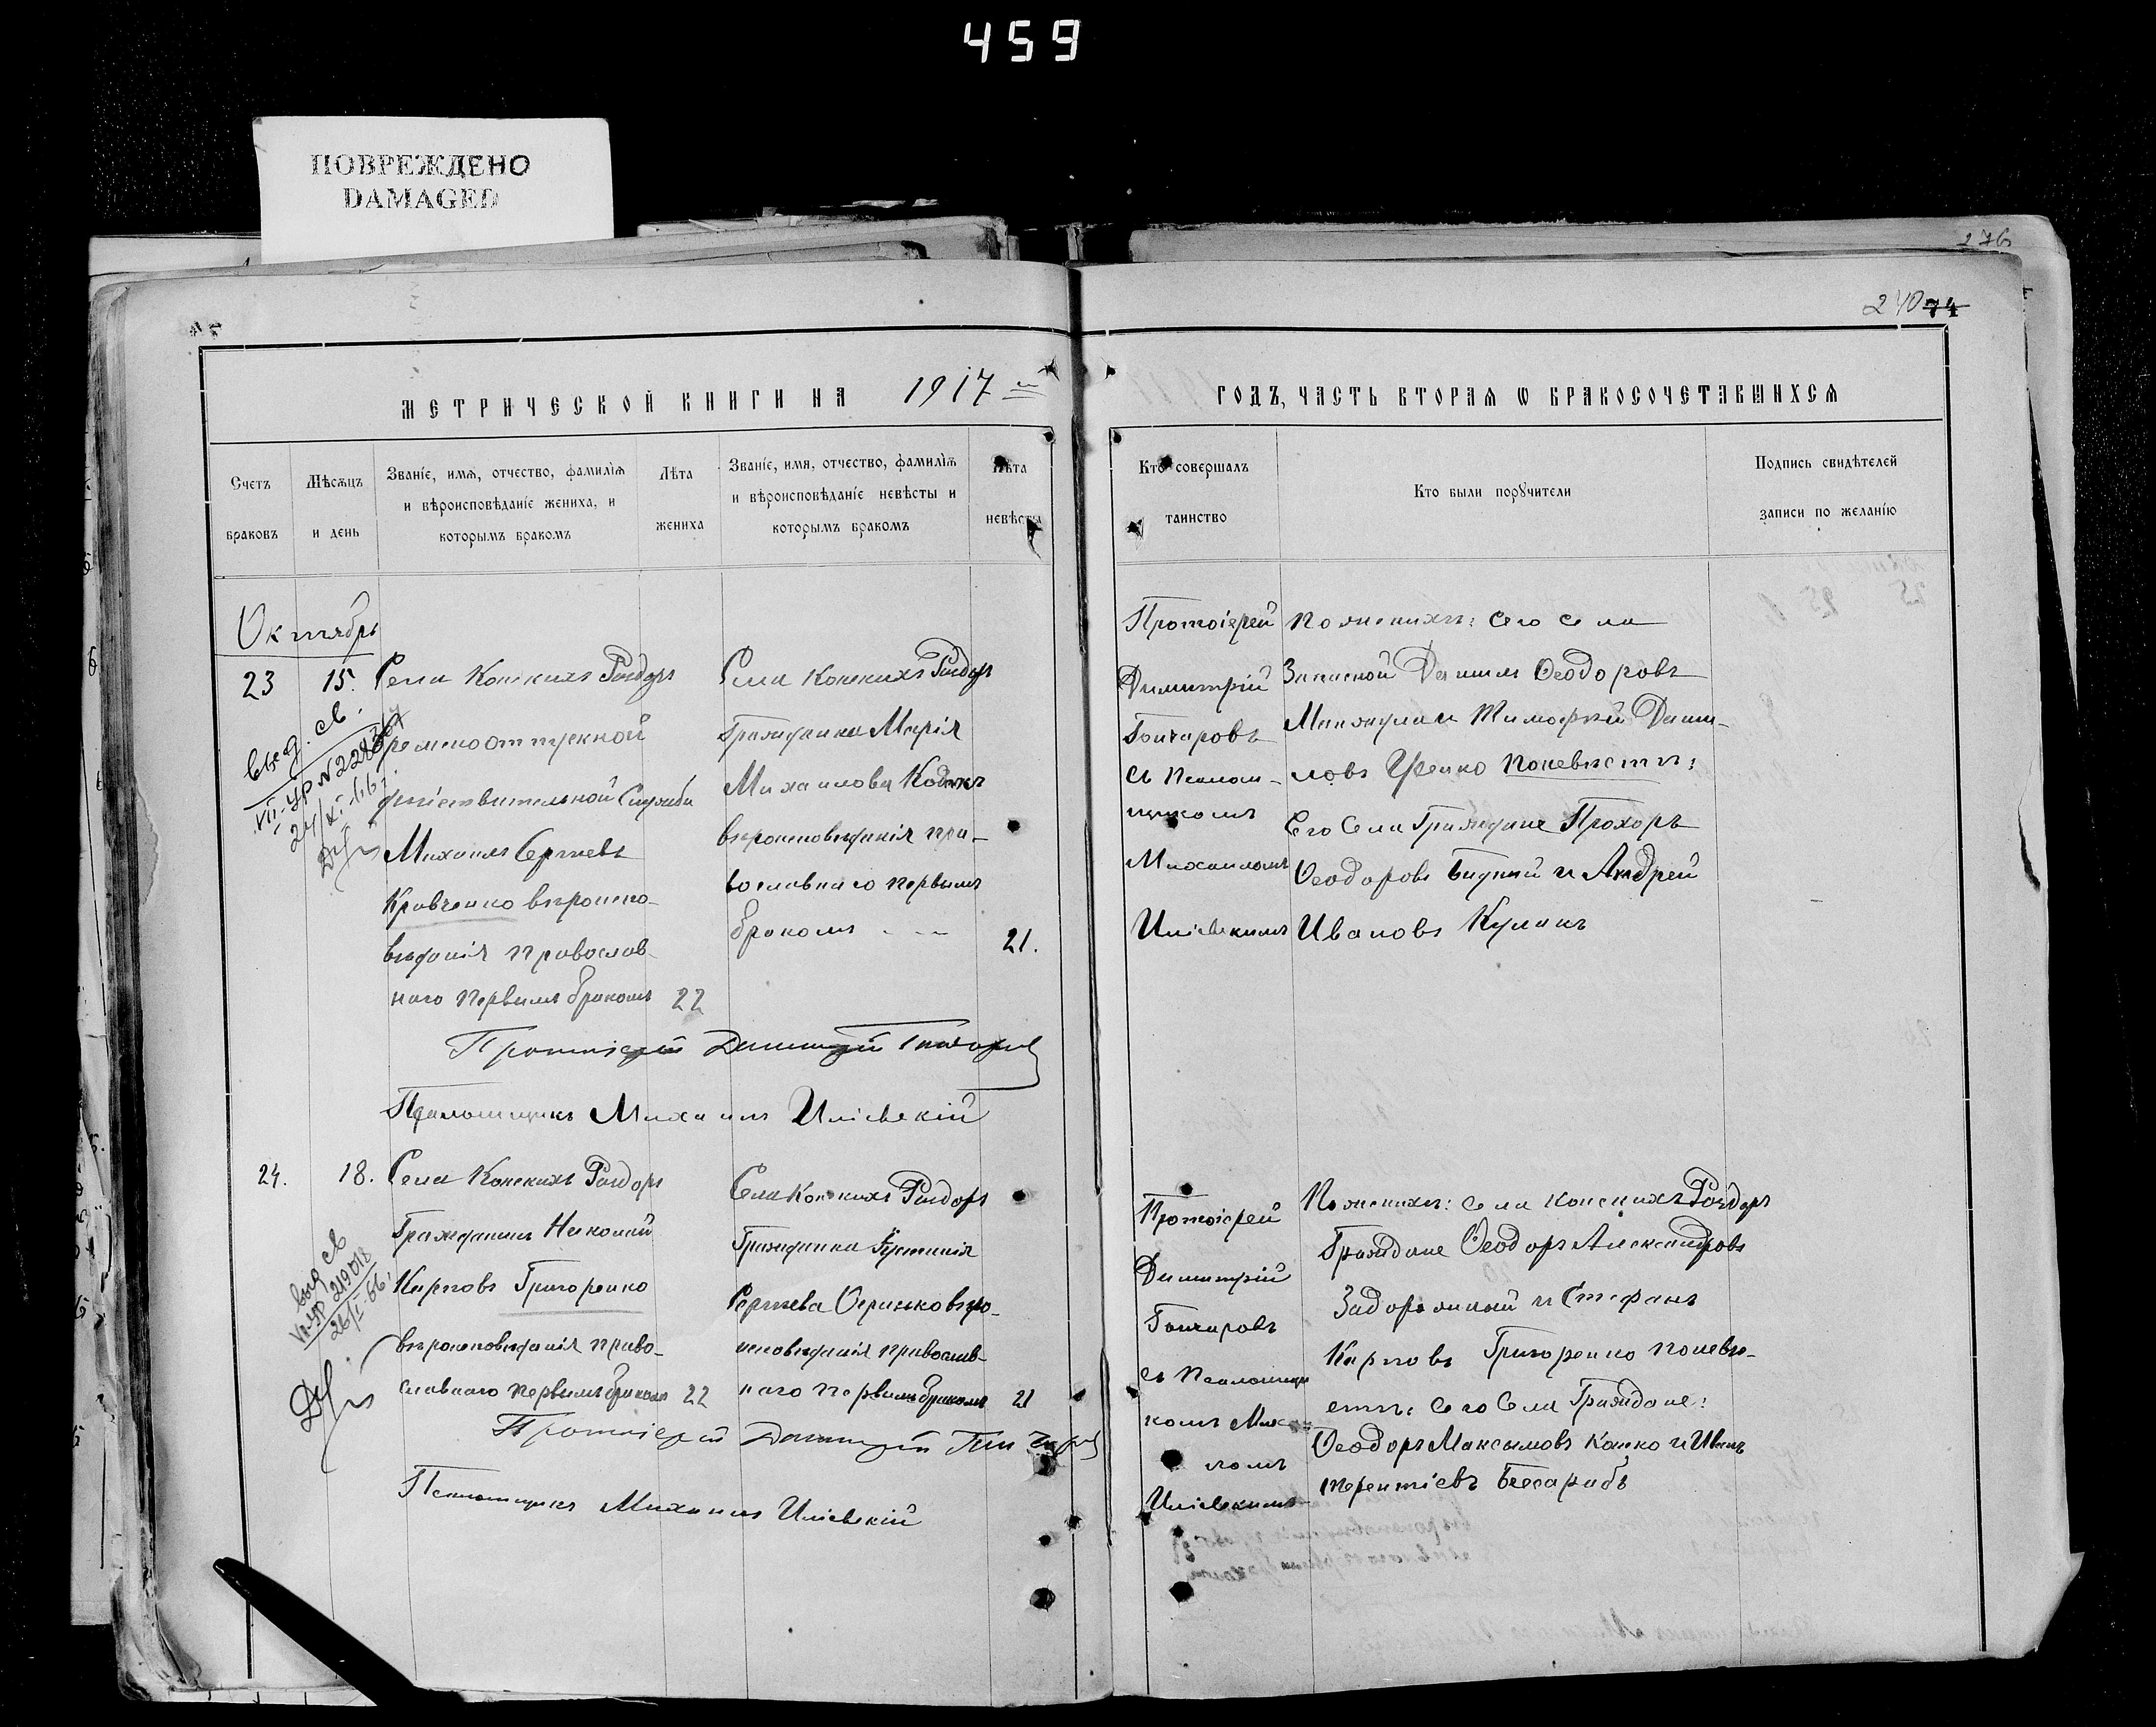 459
ПОВРЕЖДЕНО
DAMAGED
276
240 74
МЕТРИЧЕСКОЙ КНИГИ НА 1917
ГОДЪ, ЧАСТЬ ВТОРАЯ Ѡ БРАКОСОЧЕТАВШИХСЯ
Счетъ
браковъ
Мѣсяцъ
и день
Званіе, имя, отчество, фамилія
и вѣроисповѣданіе жениха, и
которымъ бракомъ
Лѣта
жениха
Званіе, имя, отчество, фамилія
и вѣроисповѣданіе невѣсты и
которымъ бракомъ
Лѣта
невѣсты
Кто совершалъ
таинство
Кто были поручители
Подпись свидѣтелей
записи по желанію
Октябрь
23
15.
Села Конскихъ Раздоръ
временоотпускной
дѣйствительной Службы
Михаилъ Сергіевъ
Кравченко вѣроиспо-
вѣданія православ-
наго первымъ бракомъ 22
Села Конскихъ Раздоръ
Гражданка Марія
Михаилова
вѣроисповѣданія пра-
вославнаго первымъ
бракомъ 21.
Протоіерей
Димитрій
Гончаровъ
съ Псалом-
щикомъ
Михаиломъ
По женихѣ: Сего Села
Запасной Даніилъ Ѳеодоровъ
и Тимофей Дани-
ловъ Уценко По невѣстѣ:
Сего Села Граждане Прохоръ
Ѳеодоровъ Бидний и Андрей
Ивановъ Куликъ
Протоіерей Димитрій Гончаровъ
Псаломщикъ Михаилъ
выд. св.
24/XI-66 г.
24.
18.
Села Конскихъ Раздоръ
Гражданинъ Николай
Карповъ Григоренко
вѣроисповѣданія право-
славнаго первымъ бракомъ 22
Села Конскихъ Раздоръ
Гражданка
Сергіева вѣро-
исповѣданія православ-
наго первымъ бракомъ 21
Протоіерей
Димитрій
Гончаровъ
съ Псаломщи
комъ Михаи
ломъ
По женихѣ: Села Конскихъ Раздоръ
Граждане Ѳеодоръ Александровъ
Задорожный и Стефанъ
Карповъ Григоренко По невѣ-
стѣ: Сего Села Граждане:
Ѳеодоръ Максимовъ Кошко и Иванъ
Терентіевъ Бесарабъ
Протоіерей Димитрій Гончаровъ
Псаломщикъ Михаилъ
выд св